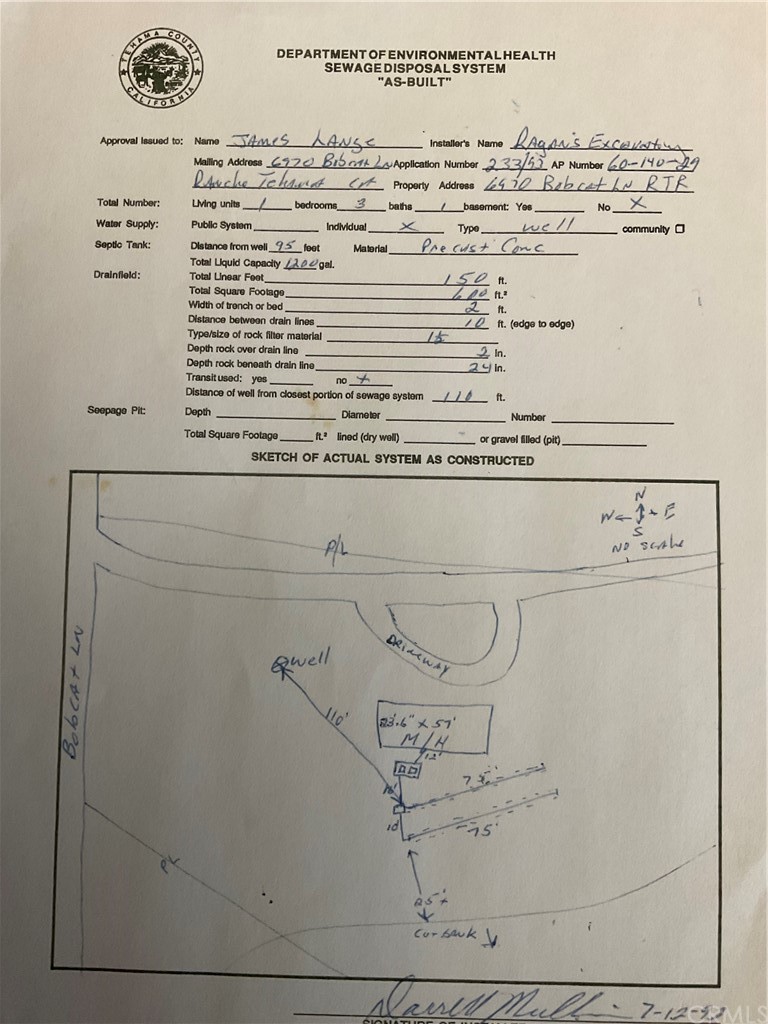 TEHAMA COUNTY
CALIFORNIA
DEPARTMENT OF ENVIRONMENTAL HEALTH
SEWAGE DISPOSAL SYSTEM
"AS-BUILT"
Approval Issued to: Name JAMES LANGE Installer's Name RAGAN'S EXCAVATING
Mailing Address 6970 Bobcat LN Application Number 233/93 AP Number 60-140-29
Rancho Tehama CA Property Address 6970 Bobcat LN RTR
Total Number: Living units 1 bedrooms 3 baths 1 basement: Yes No X
Water Supply: Public System Individual X Type well community
Septic Tank: Distance from well 95 feet Material Precast Conc
Total Liquid Capacity 1200 gal.
Drainfield: Total Linear Feet 150 ft.
Total Square Footage 600 ft.²
Width of trench or bed 2 ft.
Distance between drain lines 10 ft. (edge to edge)
Type/size of rock filter material 1½
Depth rock over drain line 2 in.
Depth rock beneath drain line 24 in.
Transit used: yes no +
Distance of well from closest portion of sewage system 110 ft.
Seepage Pit: Depth Diameter Number
Total Square Footage ft.² lined (dry well) or gravel filled (pit)
SKETCH OF ACTUAL SYSTEM AS CONSTRUCTED
N
W E
S
NO SCALE
P/L
DRIVEWAY
well
BobCAt LN
110'
23'.6" x 57'
M/H
12'
10'
75'
10'
75'
P/L
25'+
Cut BANK
Darrell 7-12-93
SIGNATURE OF
CRMLS